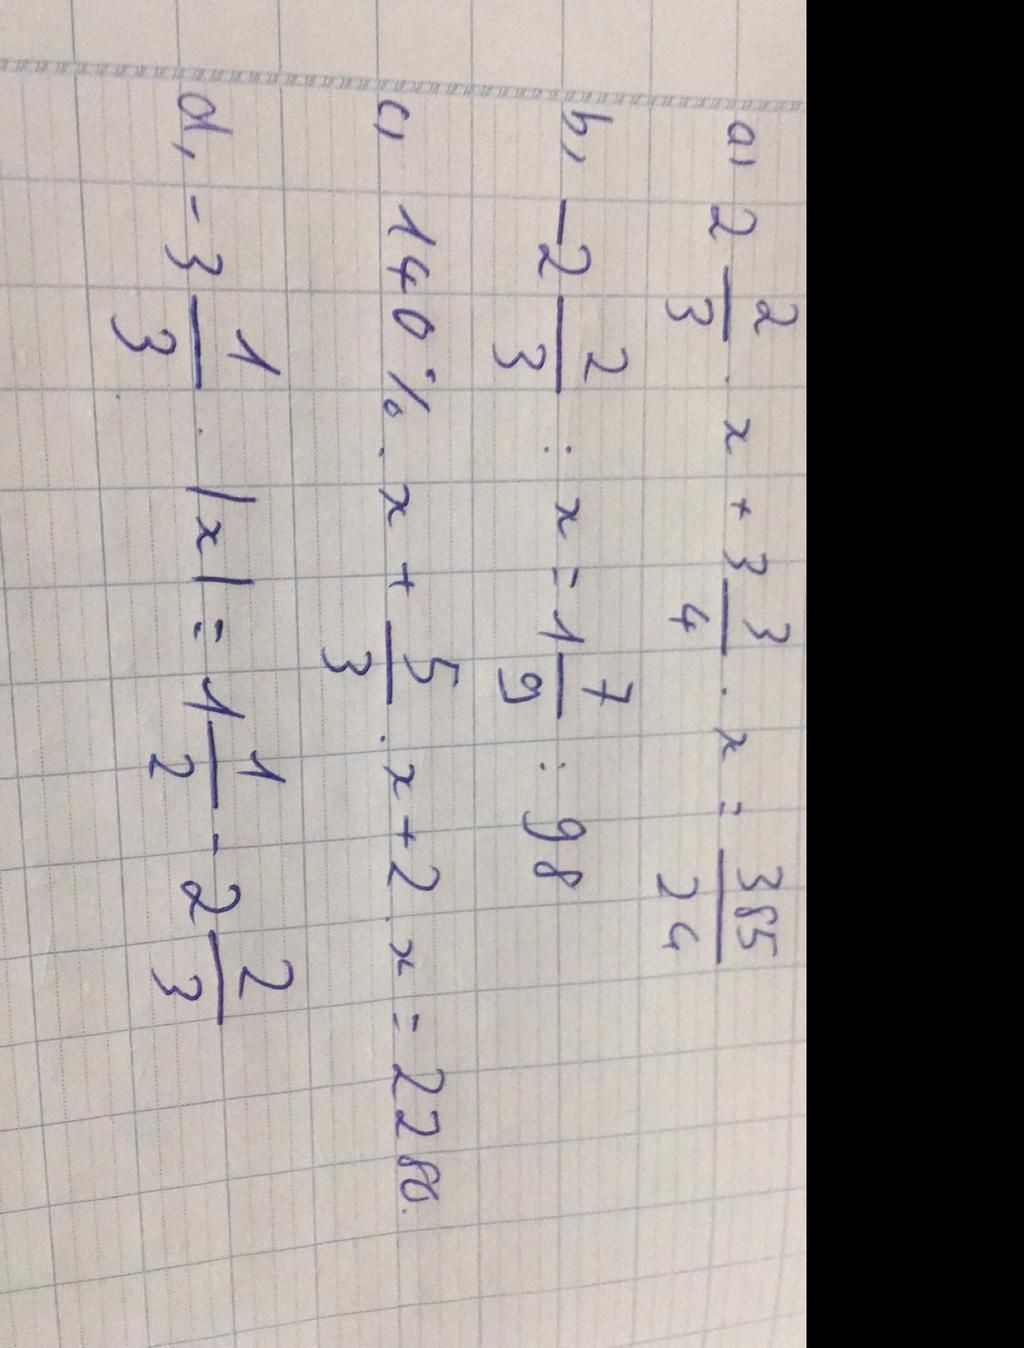 a, 2 2/3 . x + 3 3/4 . x = 385/24
b, -2 2/3 : x = 1 7/9 : 98
c, 140% . x + 5/3 . x + 2 . x = 2280.
d, -3 1/3 . |x| = 1 1/2 - 2 2/3